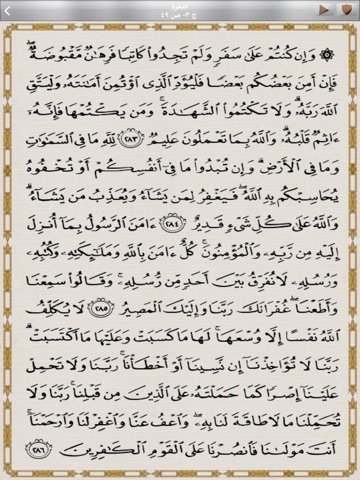 البقرة
ج ٣- ص ٤٩
۞ وَإِن كُنتُمْ عَلَىٰ سَفَرٍ وَلَمْ تَجِدُوا۟ كَاتِبًا فَرِهَٰنٌ مَّقْبُوضَةٌ ۖ
فَإِنْ أَمِنَ بَعْضُكُم بَعْضًا فَلْيُؤَدِّ ٱلَّذِى ٱؤْتُمِنَ أَمَٰنَتَهُۥ وَلْيَتَّقِ
ٱللَّهَ رَبَّهُۥ ۗ وَلَا تَكْتُمُوا۟ ٱلشَّهَٰدَةَ ۚ وَمَن يَكْتُمْهَا فَإِنَّهُۥٓ
ءَاثِمٌ قَلْبُهُۥ ۗ وَٱللَّهُ بِمَا تَعْمَلُونَ عَلِيمٌ ﴿٢٨٣﴾ لِّلَّهِ مَا فِى ٱلسَّمَٰوَٰتِ
وَمَا فِى ٱلْأَرْضِ ۗ وَإِن تُبْدُوا۟ مَا فِىٓ أَنفُسِكُمْ أَوْ تُخْفُوهُ
يُحَاسِبْكُم بِهِ ٱللَّهُ ۖ فَيَغْفِرُ لِمَن يَشَآءُ وَيُعَذِّبُ مَن يَشَآءُ ۗ
وَٱللَّهُ عَلَىٰ كُلِّ شَىْءٍ قَدِيرٌ ﴿٢٨٤﴾ ءَامَنَ ٱلرَّسُولُ بِمَآ أُنزِلَ
إِلَيْهِ مِن رَّبِّهِۦ وَٱلْمُؤْمِنُونَ ۚ كُلٌّ ءَامَنَ بِٱللَّهِ وَمَلَٰٓئِكَتِهِۦ وَكُتُبِهِۦ
وَرُسُلِهِۦ لَا نُفَرِّقُ بَيْنَ أَحَدٍ مِّن رُّسُلِهِۦ ۚ وَقَالُوا۟ سَمِعْنَا
وَأَطَعْنَا ۖ غُفْرَانَكَ رَبَّنَا وَإِلَيْكَ ٱلْمَصِيرُ ﴿٢٨٥﴾ لَا يُكَلِّفُ
ٱللَّهُ نَفْسًا إِلَّا وُسْعَهَا ۚ لَهَا مَا كَسَبَتْ وَعَلَيْهَا مَا ٱكْتَسَبَتْ ۗ
رَبَّنَا لَا تُؤَاخِذْنَآ إِن نَّسِينَآ أَوْ أَخْطَأْنَا ۚ رَبَّنَا وَلَا تَحْمِلْ
عَلَيْنَآ إِصْرًا كَمَا حَمَلْتَهُۥ عَلَى ٱلَّذِينَ مِن قَبْلِنَا ۚ رَبَّنَا وَلَا
تُحَمِّلْنَا مَا لَا طَاقَةَ لَنَا بِهِۦ ۖ وَٱعْفُ عَنَّا وَٱغْفِرْ لَنَا وَٱرْحَمْنَآ ۚ
أَنتَ مَوْلَىٰنَا فَٱنصُرْنَا عَلَى ٱلْقَوْمِ ٱلْكَٰفِرِينَ ﴿٢٨٦﴾